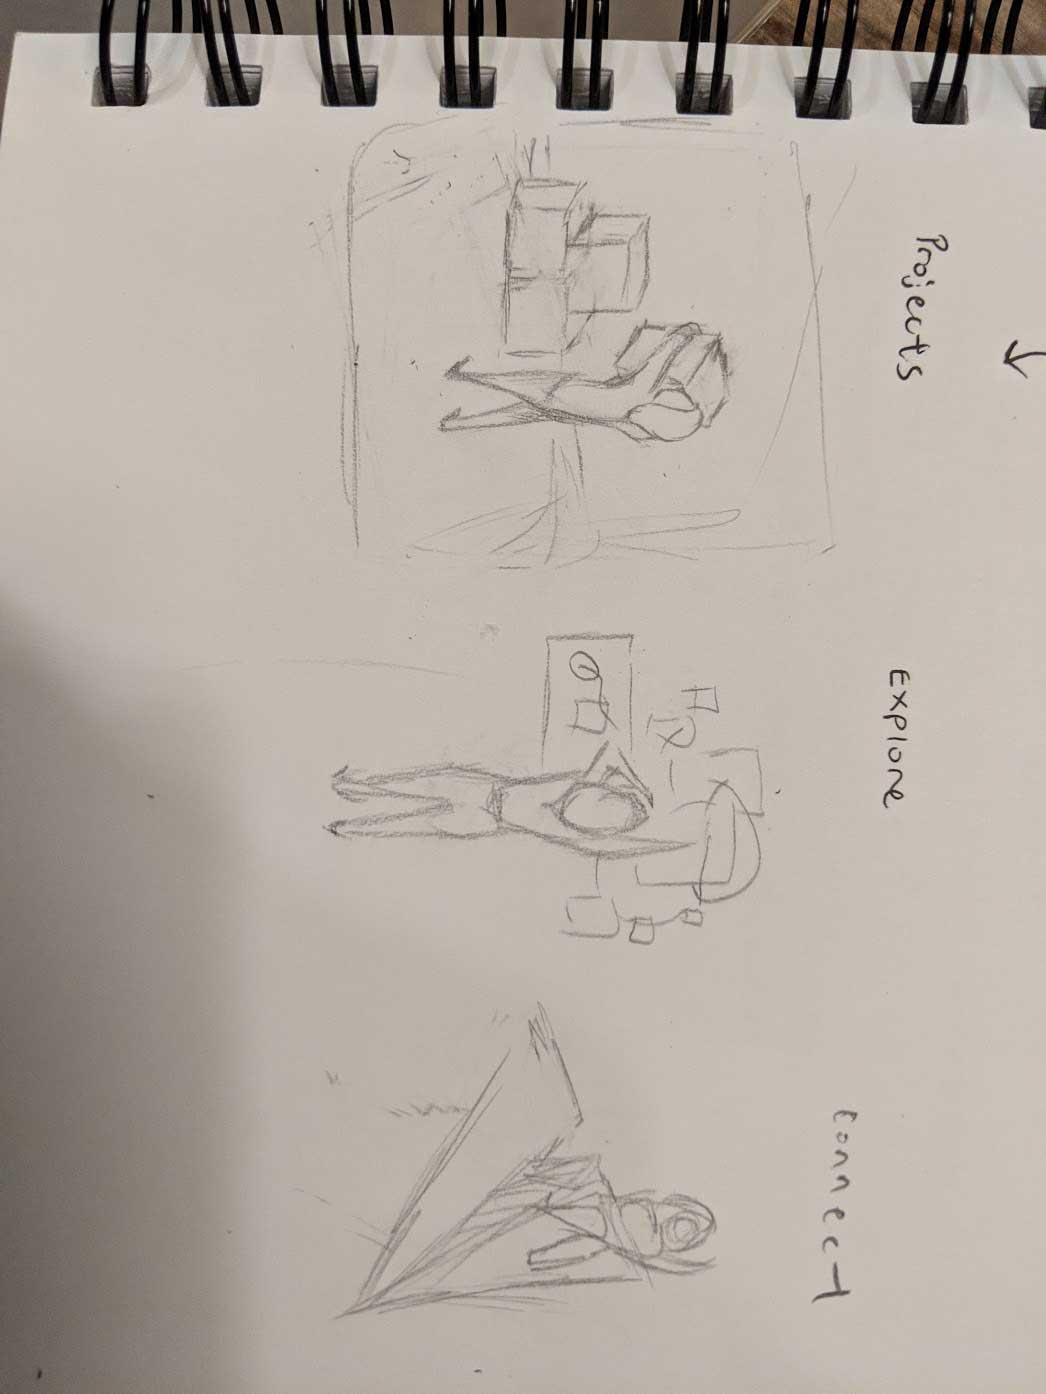 Projects
Explore
Connect